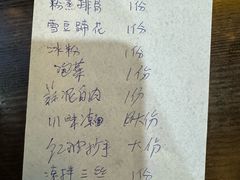 粉蒸排骨 1份
雪豆蹄花 1份
冰粉 1份
泡菜 1份
蒜泥白肉 1份
川味 份
红油抄手 大份
凉拌三丝 1份